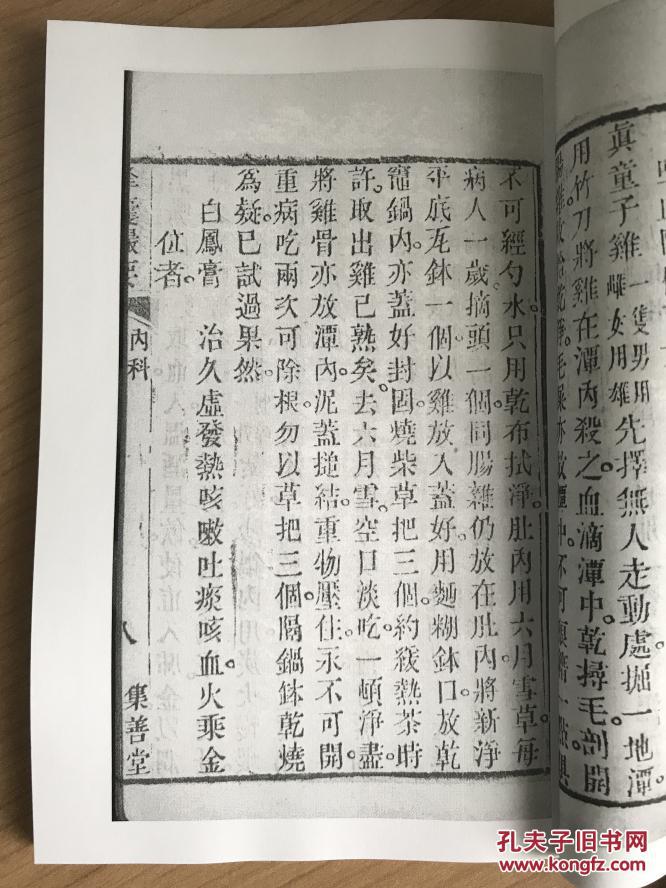 眞童子雞一隻男用雌女用雄先擇無人走動處掘一地潭。
用竹刀將雞在潭內殺之血滴潭中。乾撏毛。剖開
不可經勺水。只用乾布拭淨。肚內用六月雪草。每
病人一歲。摘頭一個。同腸雜仍放在肚內。將新淨
平底瓦鉢一個。以雞放入蓋好。用麵糊鉢口。放乾
竈鍋內。亦蓋好封固。燒柴草把三個。約緩熱茶時
許。取出雞已熟矣。去六月雪。空口淡吃。一頓淨盡。
將雞骨亦放潭內。泥蓋搥結。重物壓住。永不可開。
重病吃兩次可除根。勿以草把三個。隔鍋鉢乾燒
爲疑。已試過果然
白鳳膏 治久虛發熱咳嗽吐痰咳血。火乘金
位者。
內科
八
集善堂
孔夫子旧书网
www.kongfz.com